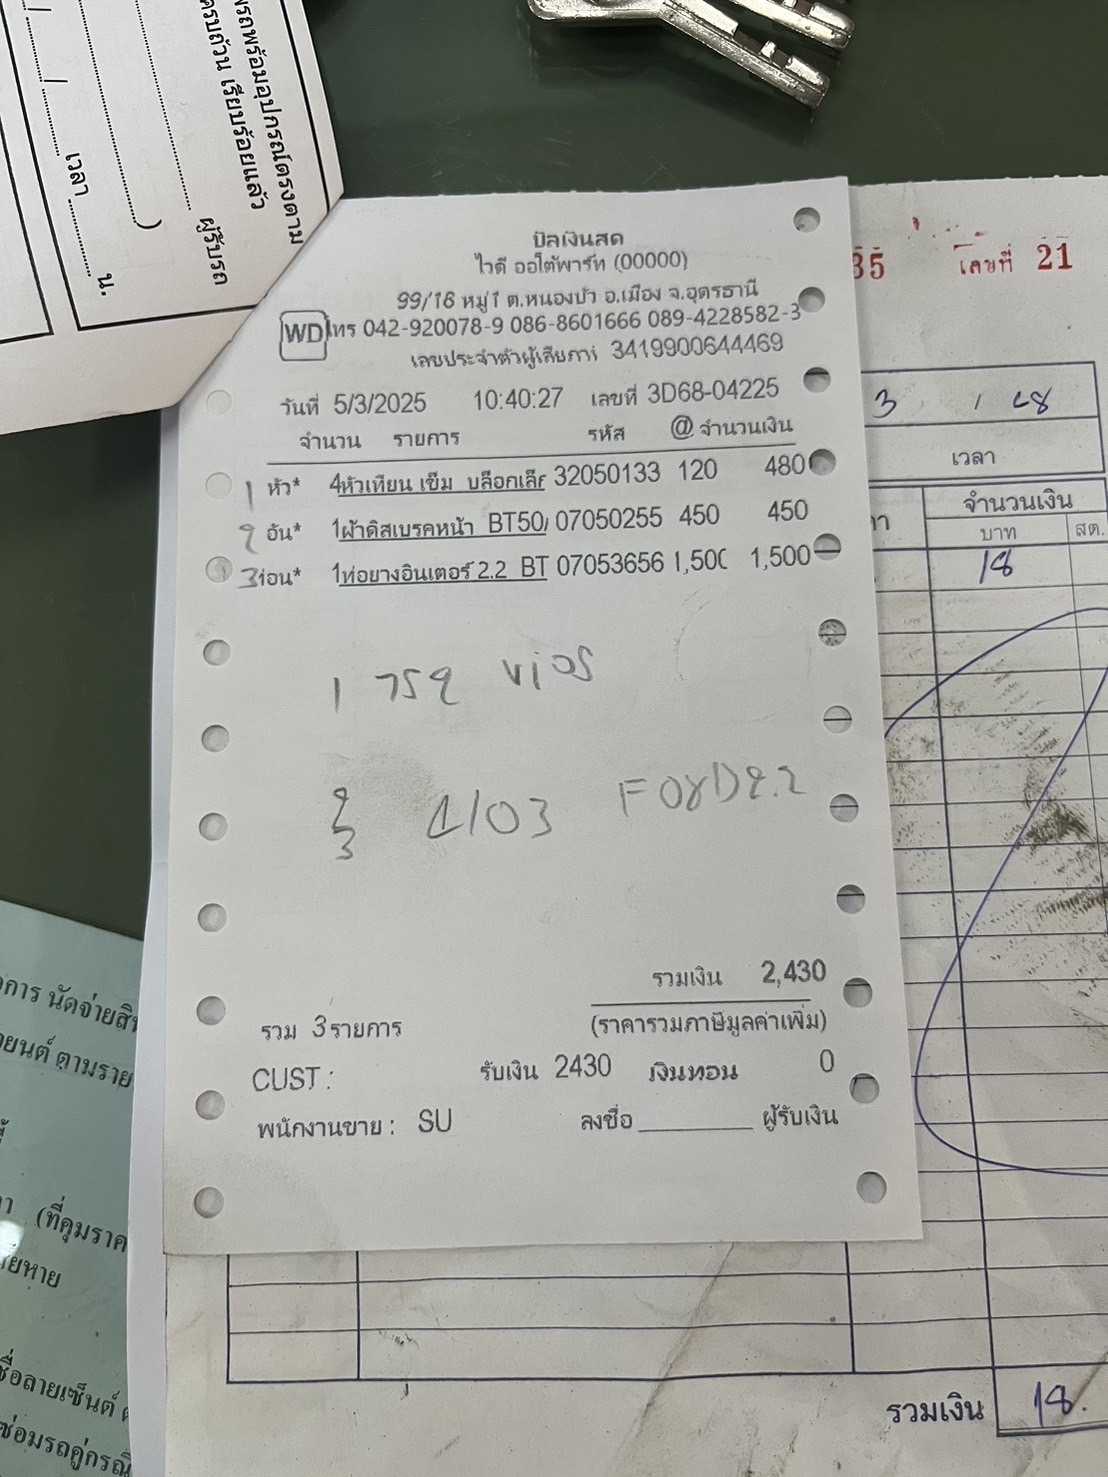 รถพร้อมอุปกรณ์ตรงตาม
ครบถ้วน เรียบร้อยแล้ว
ผู้รับรถ
)
เวลา ............ น.
35 เลขที่ 21
3 / 68
เวลา
จำนวนเงิน
บาท สต.
18
บิลเงินสด
ไวดี ออโต้พาร์ท (00000)
99/16 หมู่1 ต.หนองบัว อ.เมือง จ.อุดรธานี
WD โทร 042-920078-9 086-8601666 089-4228582-3
เลขประจำตัวผู้เสียภาษี 3419900644469
วันที่ 5/3/2025 10:40:27 เลขที่ 3D68-04225
จำนวน รายการ รหัส @ จำนวนเงิน
1 หัว* 4หัวเทียน เข็ม บล็อกเล็ก 32050133 120 480
2 อัน* 1ผ้าดิสเบรคหน้า BT50/ 07050255 450 450
3 ท่อน* 1ท่อยางอินเตอร์ 2.2 BT 07053656 1,500 1,500
1 752 vios
2
3 4103 FORD2.2
รวมเงิน 2,430
รวม 3รายการ (ราคารวมภาษีมูลค่าเพิ่ม)
CUST : รับเงิน 2430 เงินทอน 0
พนักงานขาย : SU ลงชื่อ__________ ผู้รับเงิน
การ นัดจ่ายสิน
ยนต์ ตามราย
(ที่คุมราค
ยหาย
ชื่อลายเซ็นต์
ซ่อมรถคู่กรณี
รวมเงิน 18.